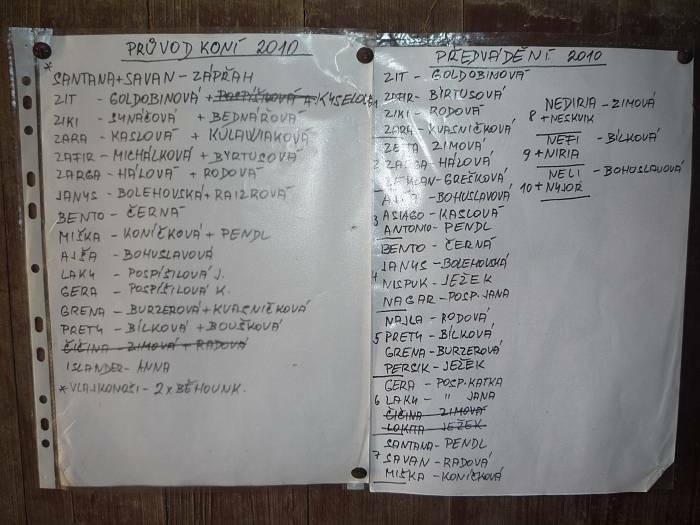 PRŮVOD KONÍ 2010
* SANTANA+SAVAN - ZÁPŘAH
ZIT - GOLDOBINOVÁ + POSPÍŠILOVÁ A. KYSELOVÁ
ZIKI - SYNÁČOVÁ + BEDNÁŘOVÁ
ZARA - KASLOVÁ + KULAWIAKOVÁ
ZAFIR - MICHÁLKOVÁ + BYRTUSOVÁ
ZARGA - HÁLOVÁ + RODOVÁ
JANYS - BOLEHOVSKÁ + RAIZROVÁ
BENTO - ČERNÁ
MIŠKA - KONÍČKOVÁ + PENDL
AJŠA - BOHUSLAVOVÁ
LAKY - POSPÍŠILOVÁ J.
GERA - POSPÍŠILOVÁ K.
GRENA - BURZEROVÁ + KVASNIČKOVÁ
PRETY - BÍLKOVÁ + BOUŠKOVÁ
ČIČINA - ZIMOVÁ + RADOVÁ
ISLANDER - ANNA
* VLAJKONOŠI - 2 x BĚHOUNK.
PŘEDVÁDĚNÍ 2010
ZIT - GOLDOBINOVÁ
1 ZAFIR - BYRTUSOVÁ
ZIKI - RODOVÁ
ZARA - KVASNIČKOVÁ
ZETA ZIMOVÁ
2 ZARGA - HÁLOVÁ
- GREŠKOVÁ
AJŠA - BOHUSLAVOVÁ
3 ASIAGO - KASLOVÁ
ANTONIO - PENDL
BENTO - ČERNÁ
JANYS - BOLEHOVSKÁ
4 NISPUK - JEŽEK
NAGAR - POSP. JANA
NAJLA - RODOVÁ
5 PRETY - BÍLKOVÁ
GRENA - BURZEROVÁ
PERSIK - JEŽEK
GERA - POSP. KATKA
6 LAKY - " JANA
ČIČINA ZIMOVÁ
LOKITA - JEŽEK
SANTANA - PENDL
7 SAVAN - RADOVÁ
MIŠKA - KONÍČKOVÁ
NEDIRIA - ZIMOVÁ
8 + NESKVIK
NEFI - BÍLKOVÁ
9 + NIRIA
NELI - BOHUSLAVOVÁ
10 + NYJOR